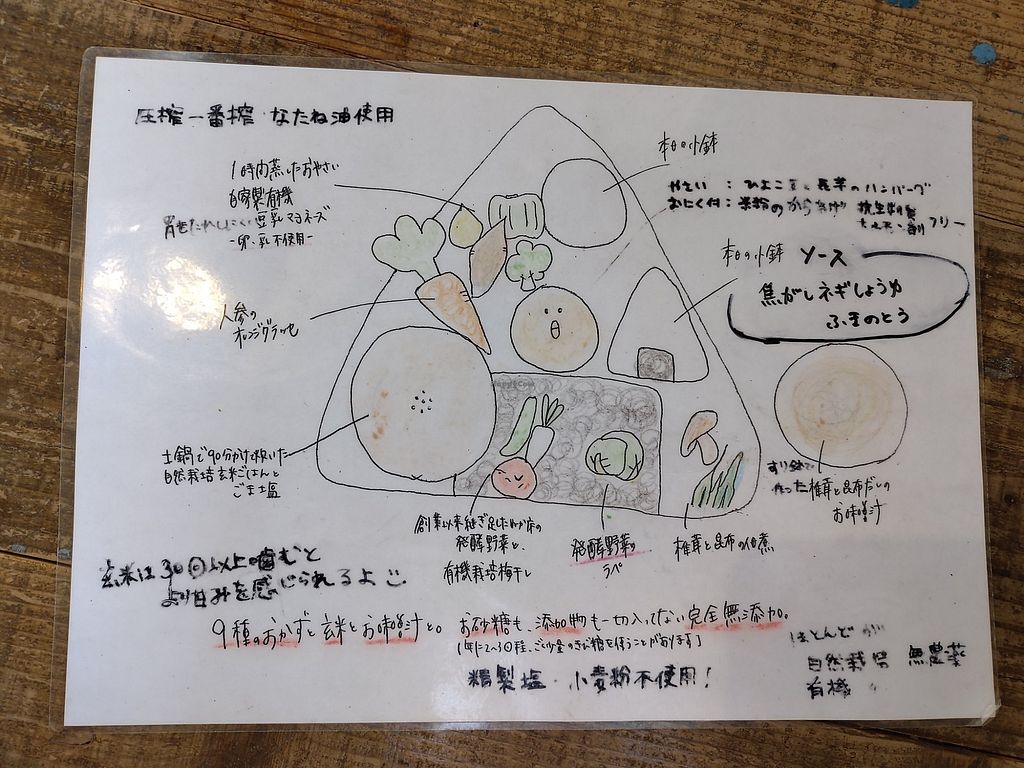 圧搾一番搾・なたね油使用
1時間蒸したおやさい
自家製有機
胃もたれしにくい豆乳マヨネーズ
-卵、乳不使用-
人参の
オレンジグラッセ
土鍋で90分かけ炊いた
自然栽培玄米ごはんと
ごま塩
本日の小鉢
やさい：ひよこ豆と長芋のハンバーグ
おにく付：米粉のからあげ 抗生物質
ホルモン剤フリー
本日の小鉢 ソース
焦がしネギしょうゆ
ふきのとう
HappyCow
創業以来継ぎ足したぬか床の
発酵野菜と、
有機栽培梅干し
発酵野菜の
ラペ
椎茸と昆布の佃煮
すり鉢で
作った椎茸と昆布だしの
お味噌汁
玄米は30回以上噛むと
より甘みを感じられるよ
9種のおかずと玄米とお味噌汁と。
お砂糖も、添加物も一切入ってない完全無添加。
(年に2~3回程、ごく少量のきび糖を使うことがあります)
精製塩・小麦粉不使用!
ほとんどが
自然栽培 無農薬
有機